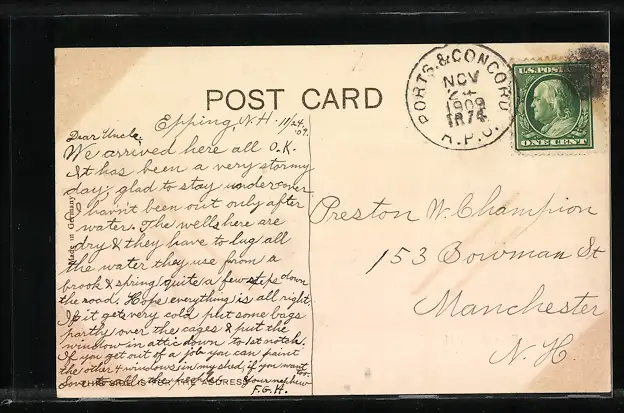 POST CARD
PORTS. & CONCORD
NOV
24
1909
TR 74
R.P.O.
U.S. POST
ONE CENT
Made in Germany
Epping, N.H. 11/24, '09.
Dear Uncle,
We arrived here all O.K.
It has been a very stormy
day, glad to stay undercover
I havn't been out only after
water. The wells here are
dry & they have to lug all
the water they use from a
brook & spring quite a few steps down
the road. Hope everything is all right.
If it gets very cold put some bags
partly over the cages & put the
window in attic down to 1st notch.
If you get out of a job you can paint
the other 4 windows in my shed, if you want to.
Love to all the people. Your nephew
F.G.H.
THIS SIDE IS FOR THE ADDRESS
Preston W. Champion
153 Bowman St
Manchester
N.H.